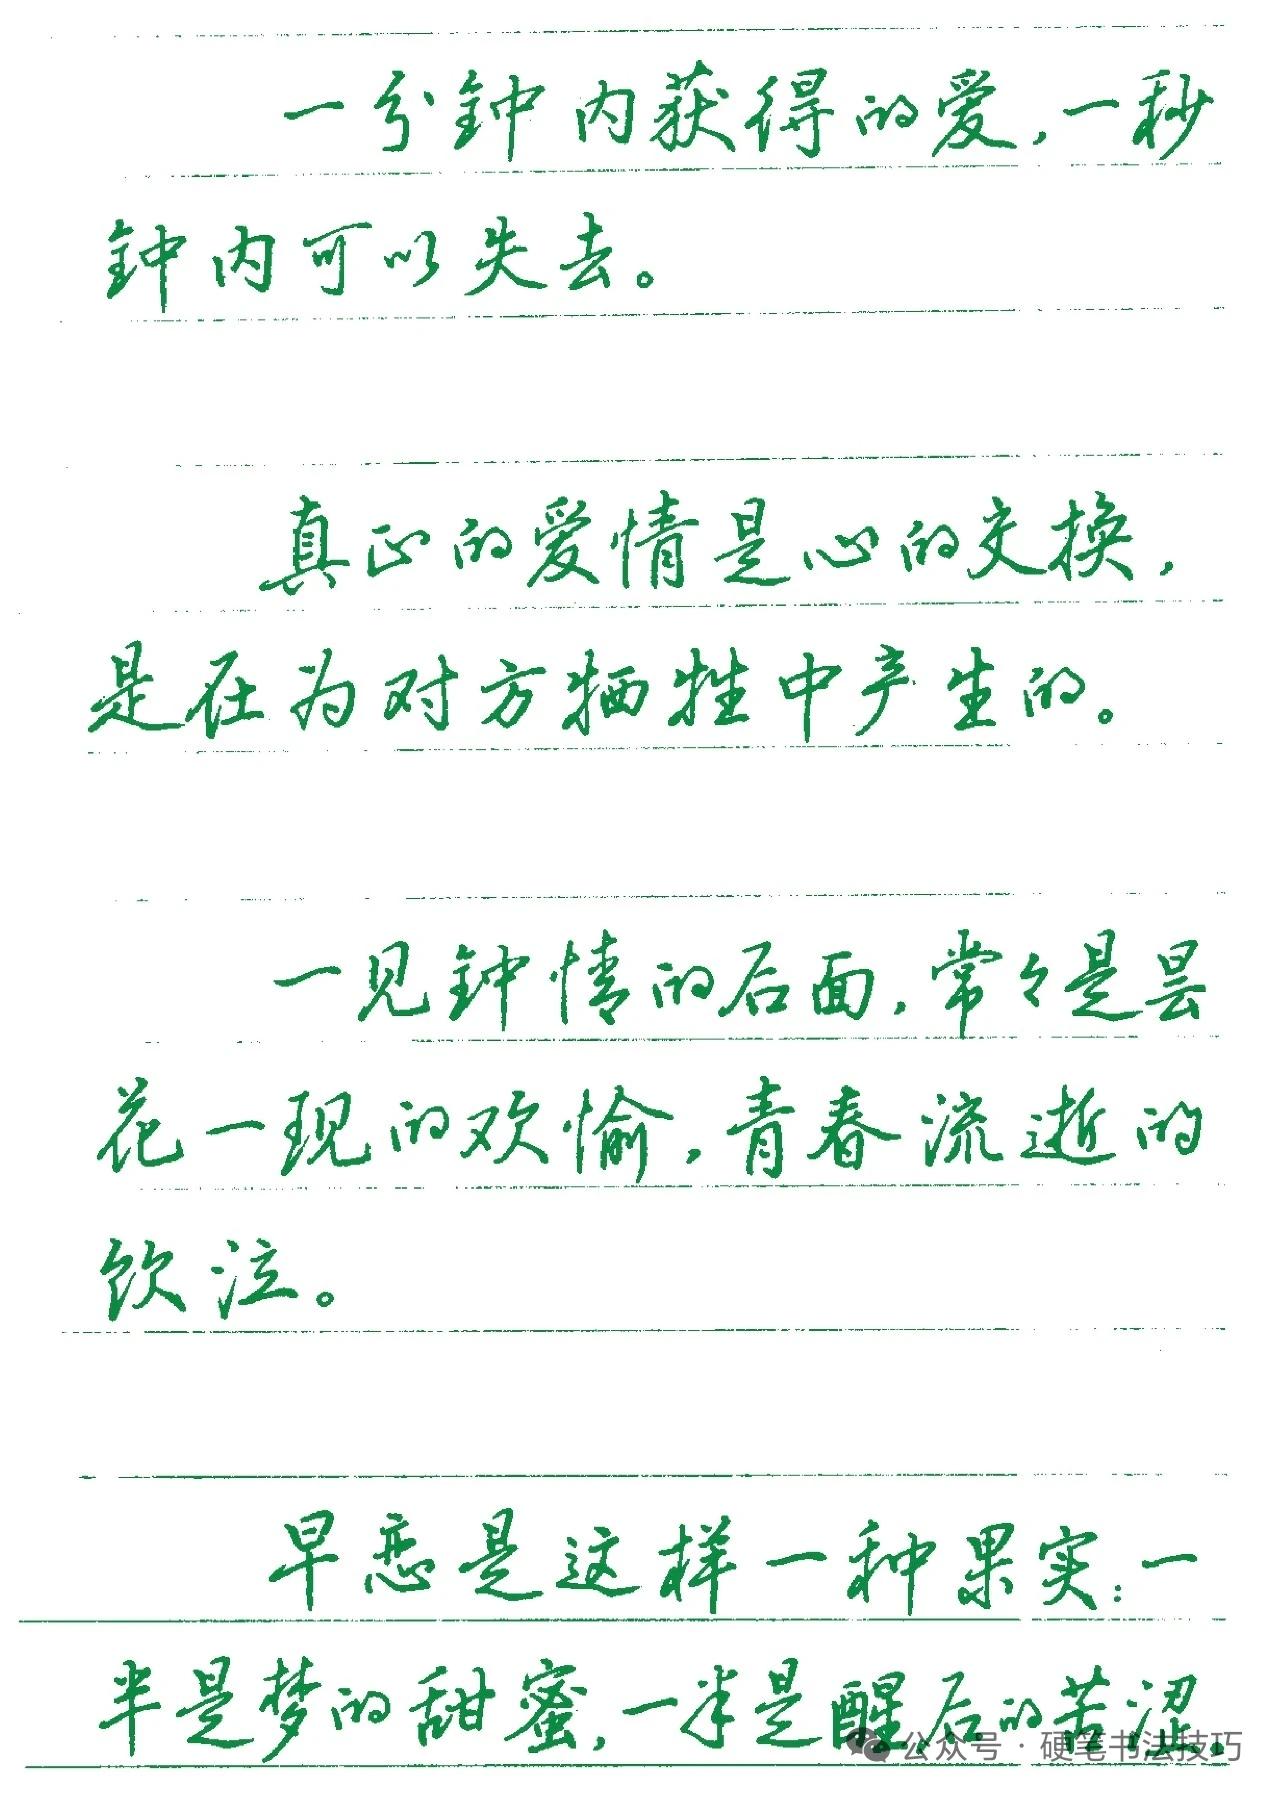 一分钟内获得的爱，一秒
钟内可以失去。
真正的爱情是心的交换，
是在为对方牺牲中产生的。
一见钟情的后面，常々是昙
花一现的欢愉，青春流逝的
饮泣。
早恋是这样一种果实：一
半是梦的甜蜜，一半是醒后的苦涩。
公众号·硬笔书法技巧